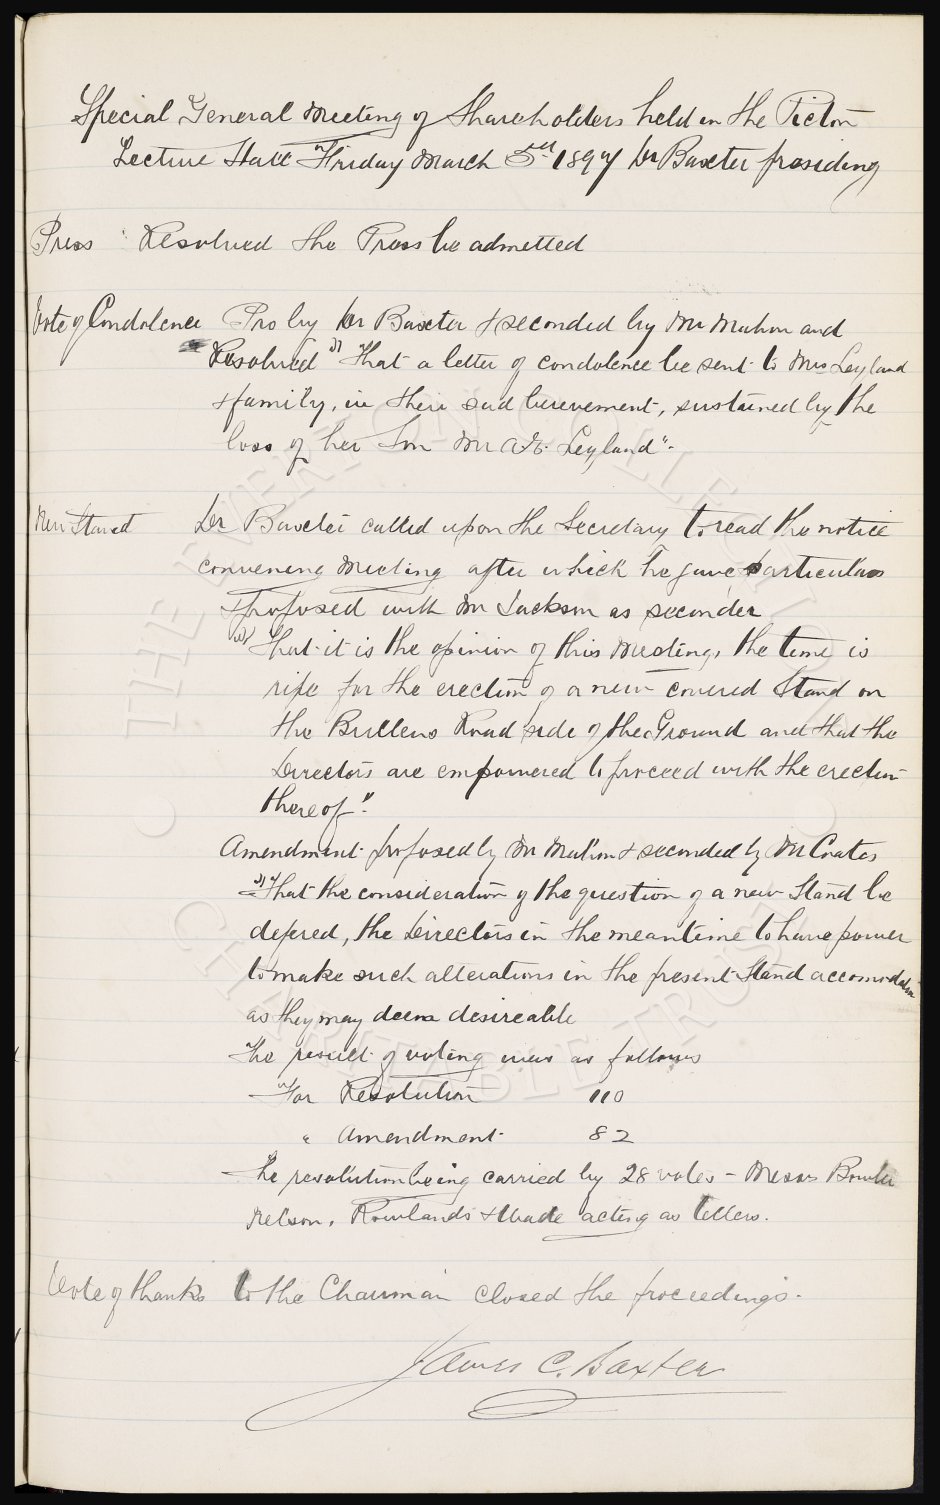 Special General Meeting of Shareholders held in the Picton
Lecture Hall Friday March 5th 1897 Dr Baxter presiding
Press Resolved the Press be admitted
Vote of Condolence Pro by Dr Baxter & seconded by Mr Mahon and
Resolved "That a letter of condolence be sent to Mrs Leyland
& family, in their sad berevement, sustained by the
loss of her Son Mr Leyland".
New Stand Dr Baxter called upon the Secretary to read the notice
convening Meeting after which he gave particulars
& proposed with Mr Jackson as seconder
"That it is the opinion of this Meeting, the time is
ripe for the erection of a new covered Stand on
the Bullens Road side of the Ground and that the
Directors are empowered to proceed with the erection
thereof".
Amendment proposed by Mr Mahon & seconded by Mr Coates
"That the consideration of the question of a new Stand be
defered, the Directors in the meantime to have power
to make such alterations in the present Stand accomodation
as they may deem desireable
The result of voting was as follows
For Resolution 110
" Amendment 82
The resolution being carried by 28 votes - Messrs Bowler
Nelson, Rowlands & Wade acting as tellers.
Vote of thanks to the Chairman closed the proceedings.
James C. Baxter
THE EVERTON COLLECTION
CHARITABLE TRUST